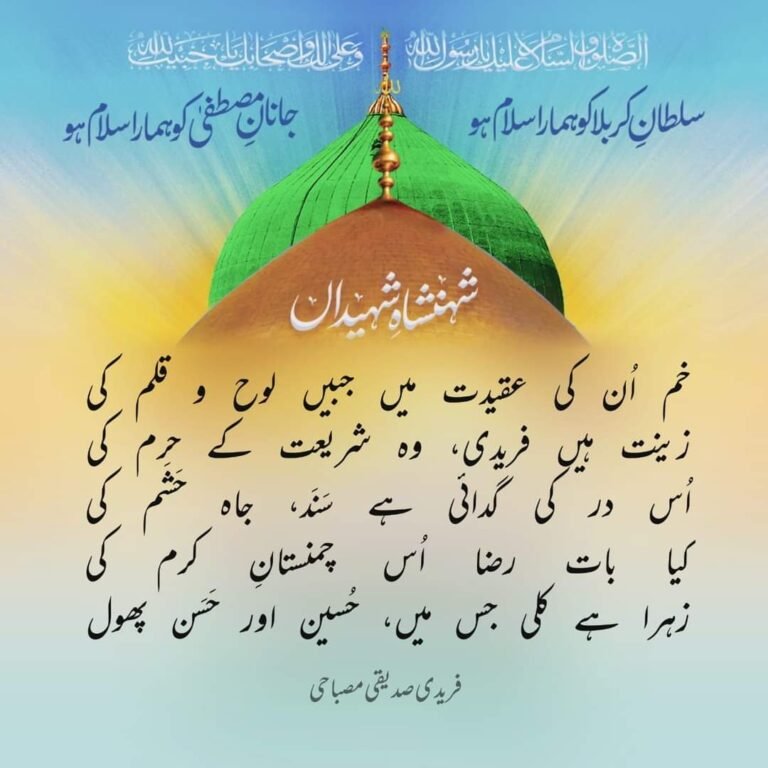 الصلوٰۃ والسلام علیک یارسول اللہ وعلیٰ اٰلک واصحابک یاحبیب اللہ
سلطانِ کربلا کو ہمارا سلام ہو جانانِ مصطفیٰ کو ہمارا سلام ہو
شہنشاہِ شہیداں
خم اُن کی عقیدت میں جبیں لوح و قلم کی
زینت ہیں فریدی، وہ شریعت کے حرم کی
اُس در کی گدائی ہے سَنَد، جاہ حَشَم کی
کیا بات رضا اُس چمنستانِ کرم کی
زہرا ہے کلی جس میں، حُسین اور حَسَن پھول
فریدی صدیقی مصباحی